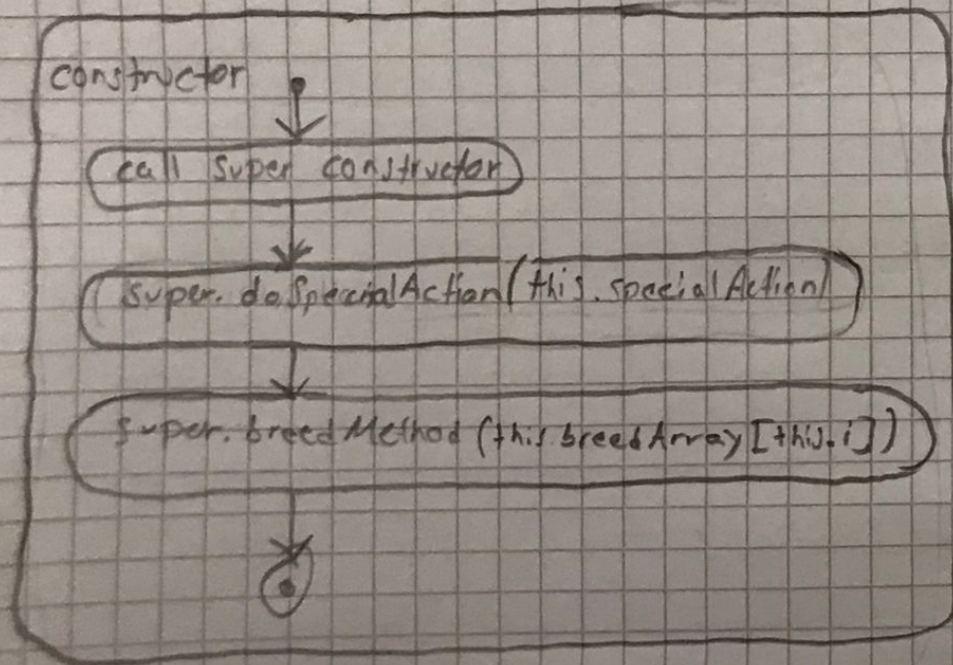 constructor
call super constructor
super.doSpecialAction(this.specialAction)
super.breedMethod(this.breedArray[this.i])